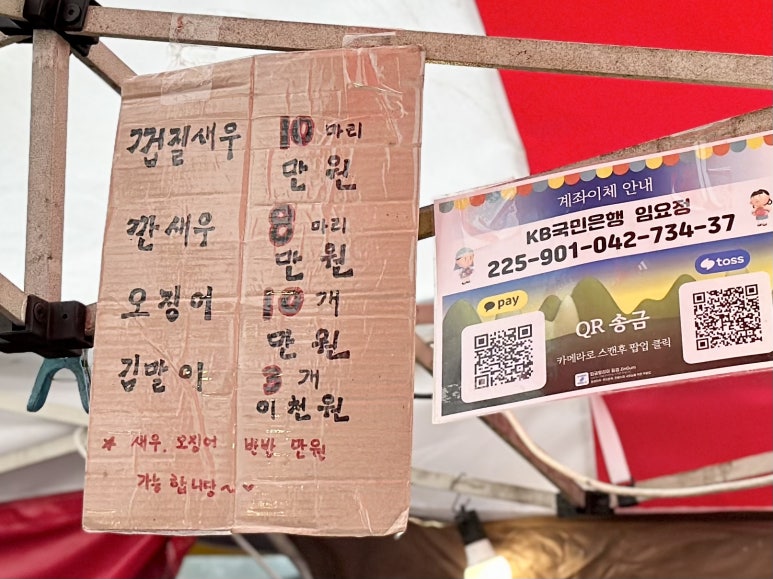 껍질새우 10마리
만원
깐새우 8마리
만원
오징어 10개
만원
김말이 3개
이천원
* 새우, 오징어 반반 만원
가능합니당~♥
계좌이체 안내
KB국민은행 임요정
225-901-042-734-37
pay
toss
QR 송금
카메라로 스캔후 팝업 클릭